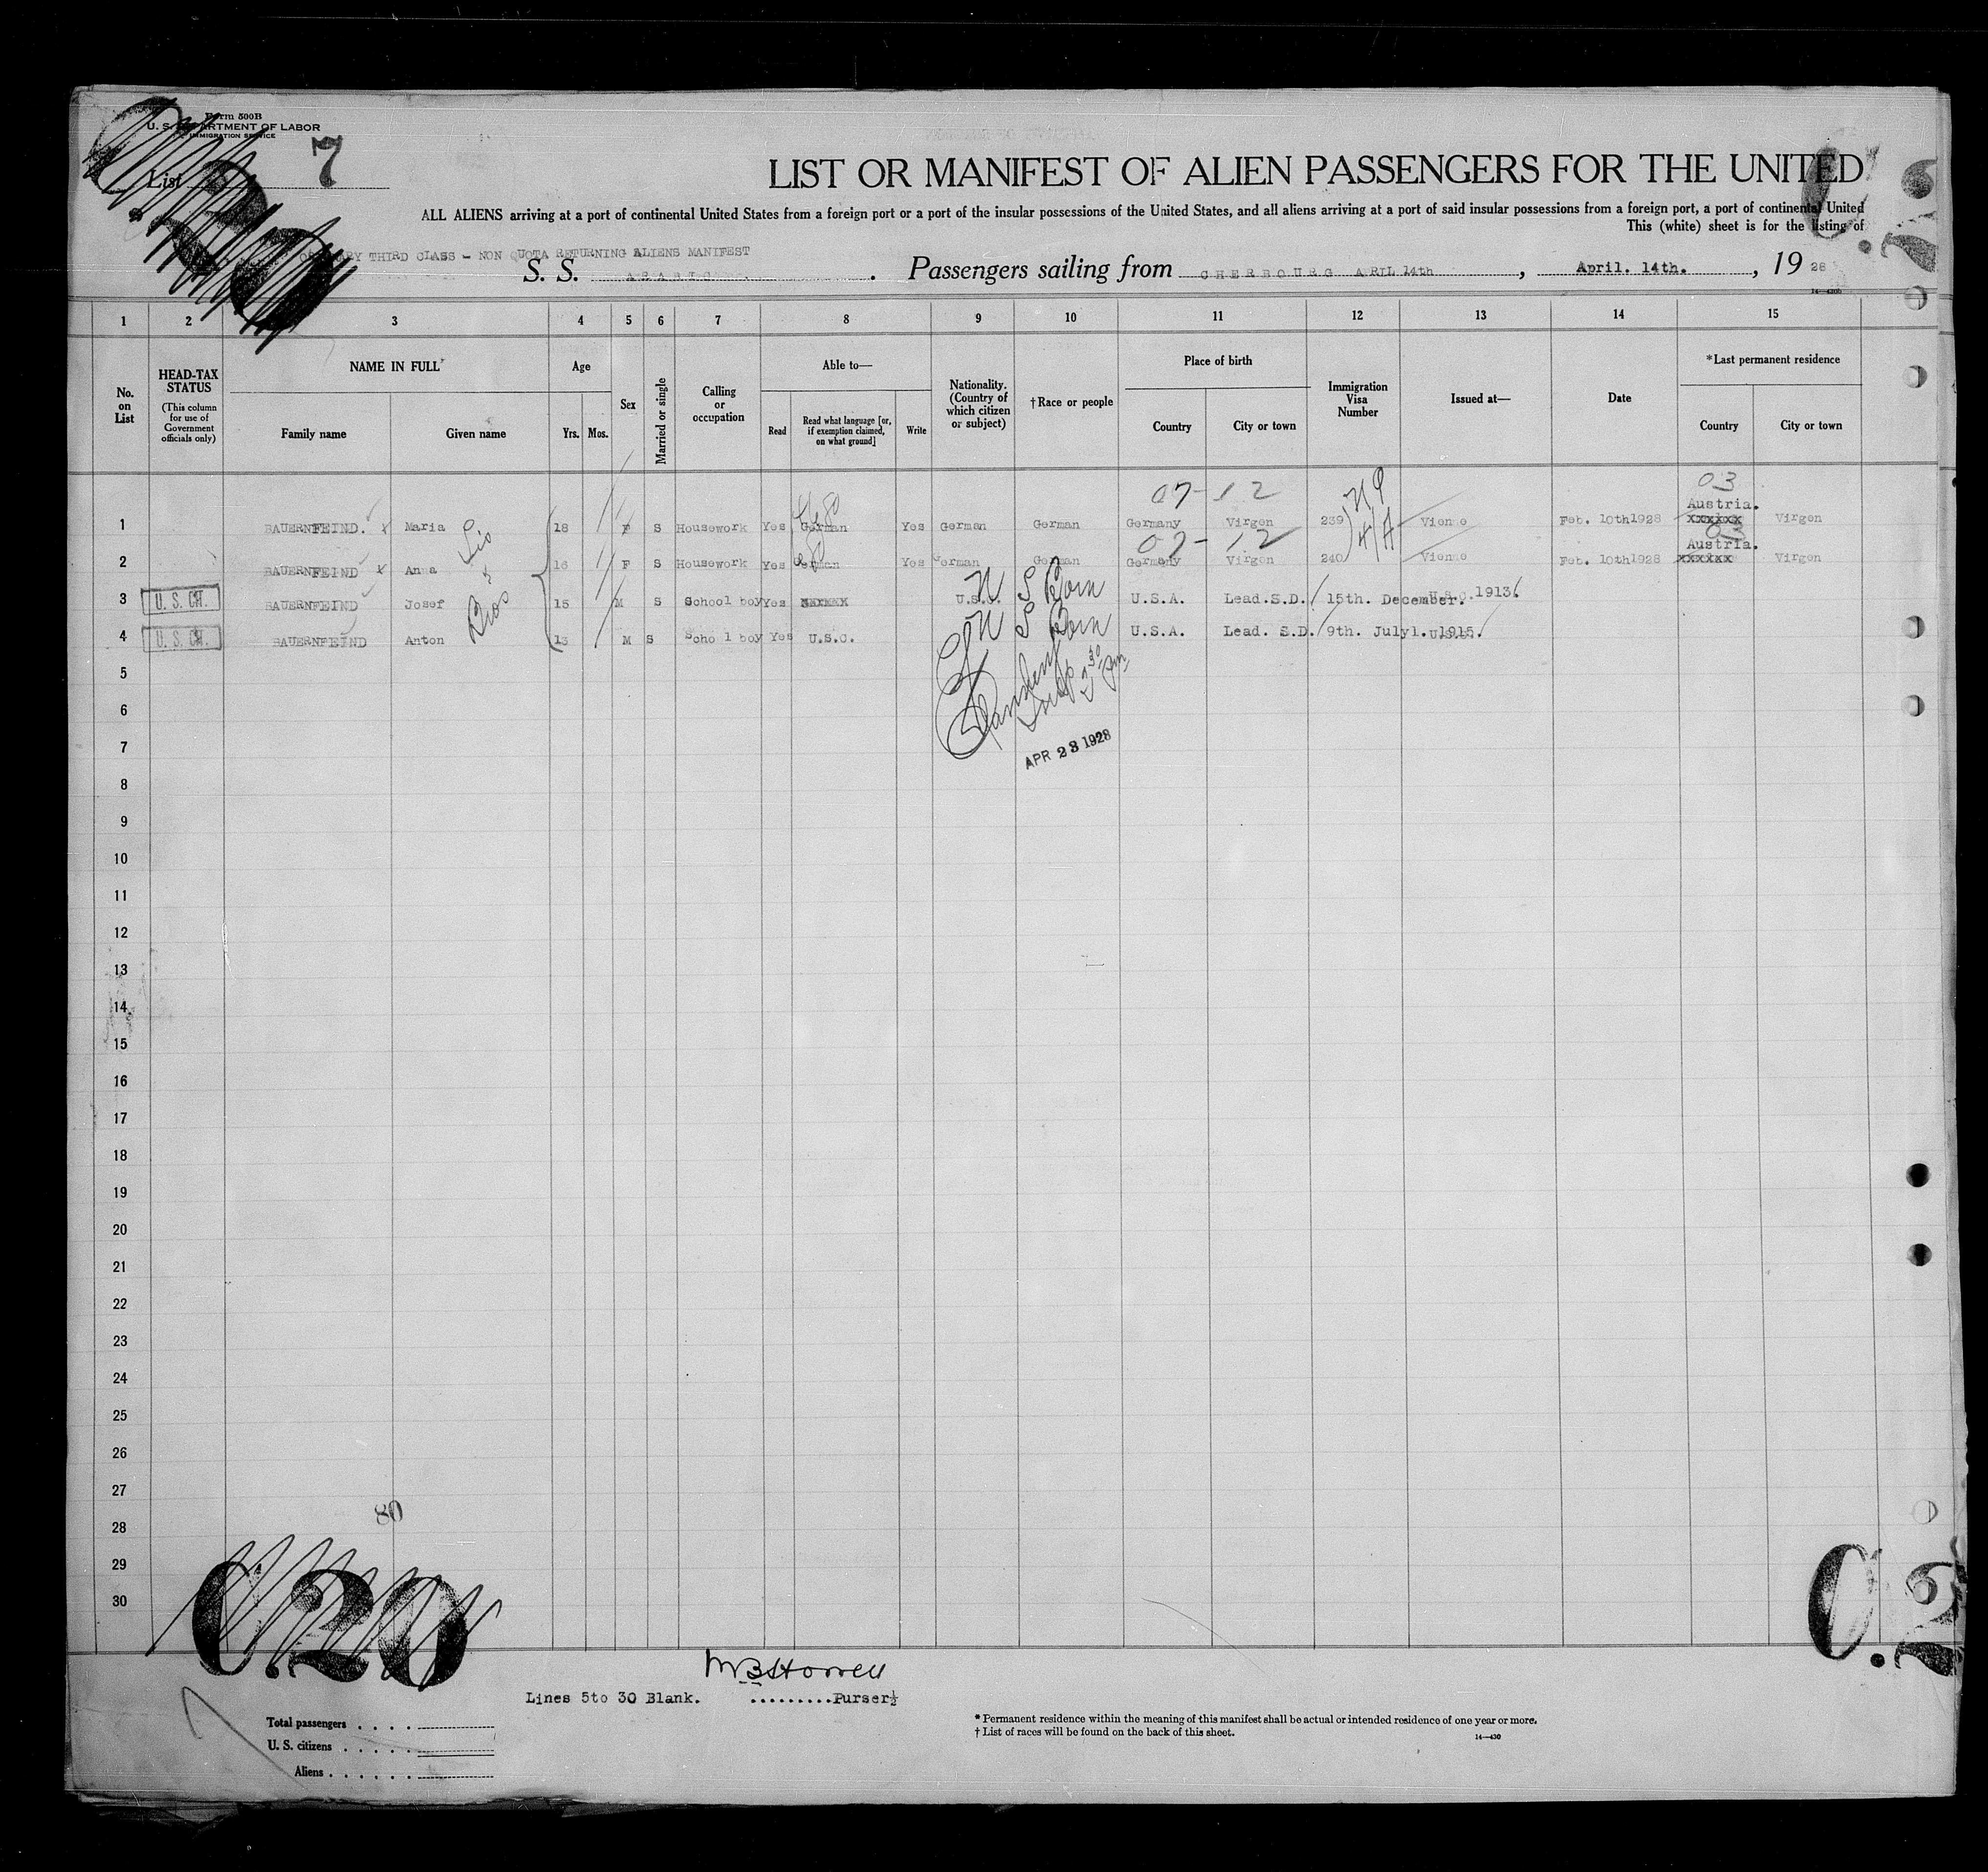 Form 500B
U. S. DEPARTMENT OF LABOR
IMMIGRATION SERVICE
List 7
LIST OR MANIFEST OF ALIEN PASSENGERS FOR THE UNITED
ALL ALIENS arriving at a port of continental United States from a foreign port or a port of the insular possessions of the United States, and all aliens arriving at a port of said insular possessions from a foreign port, a port of continental United
This (white) sheet is for the listing of
THIRD CLASS - NON QUOTA RETURNING ALIENS MANIFEST
S. S. ARABIC. Passengers sailing from CHERBOURG APRIL 14th, April. 14th., 1928
14-430b
1 2 3 4 5 6 7 8 9 10 11 12 13 14 15
No. on List
HEAD-TAX STATUS
(This column for use of Government officials only)
NAME IN FULL
Family name Given name
Age
Yrs. Mos.
Sex
Married or single
Calling or occupation
Able to—
Read
Read what language [or, if exemption claimed, on what ground]
Write
Nationality. (Country of which citizen or subject)
†Race or people
Place of birth
Country City or town
Immigration Visa Number
Issued at—
Date
*Last permanent residence
Country City or town
07-12 NP 03
Austria.
1 BAUERNFEIND. x Maria 18 F S Housework Yes German Yes German German Germany Virgen 239 Vienne Feb. 10th1928 xxxxxx Virgen
07-12 03
Austria.
2 BAUERNFEIND x Anna 16 F S Housework Yes German Yes German German Germany Virgen 240 Vienne Feb. 10th1928 xxxxxx Virgen
3 U. S. CIT. BAUERNFEIND Josef 15 M S School boy Yes U.S.C. U S Born U.S.A. Lead.S.D. 15th. December. 1913.
4 U. S. CIT. BAUERNFEIND Anton 13 M S Scho l boy Yes U.S.C. U S Born U.S.A. Lead. S.D. 9th. July1. 1915.
Sis & Bros
5
6
7
APR 23 1928
8
9
10
11
12
13
14
15
16
17
18
19
20
21
22
23
24
25
26
27
80
28
29
30
C.20
Lines 5to 30 Blank. .........Purser
Total passengers
U. S. citizens
Aliens
* Permanent residence within the meaning of this manifest shall be actual or intended residence of one year or more.
† List of races will be found on the back of this sheet.
14-430